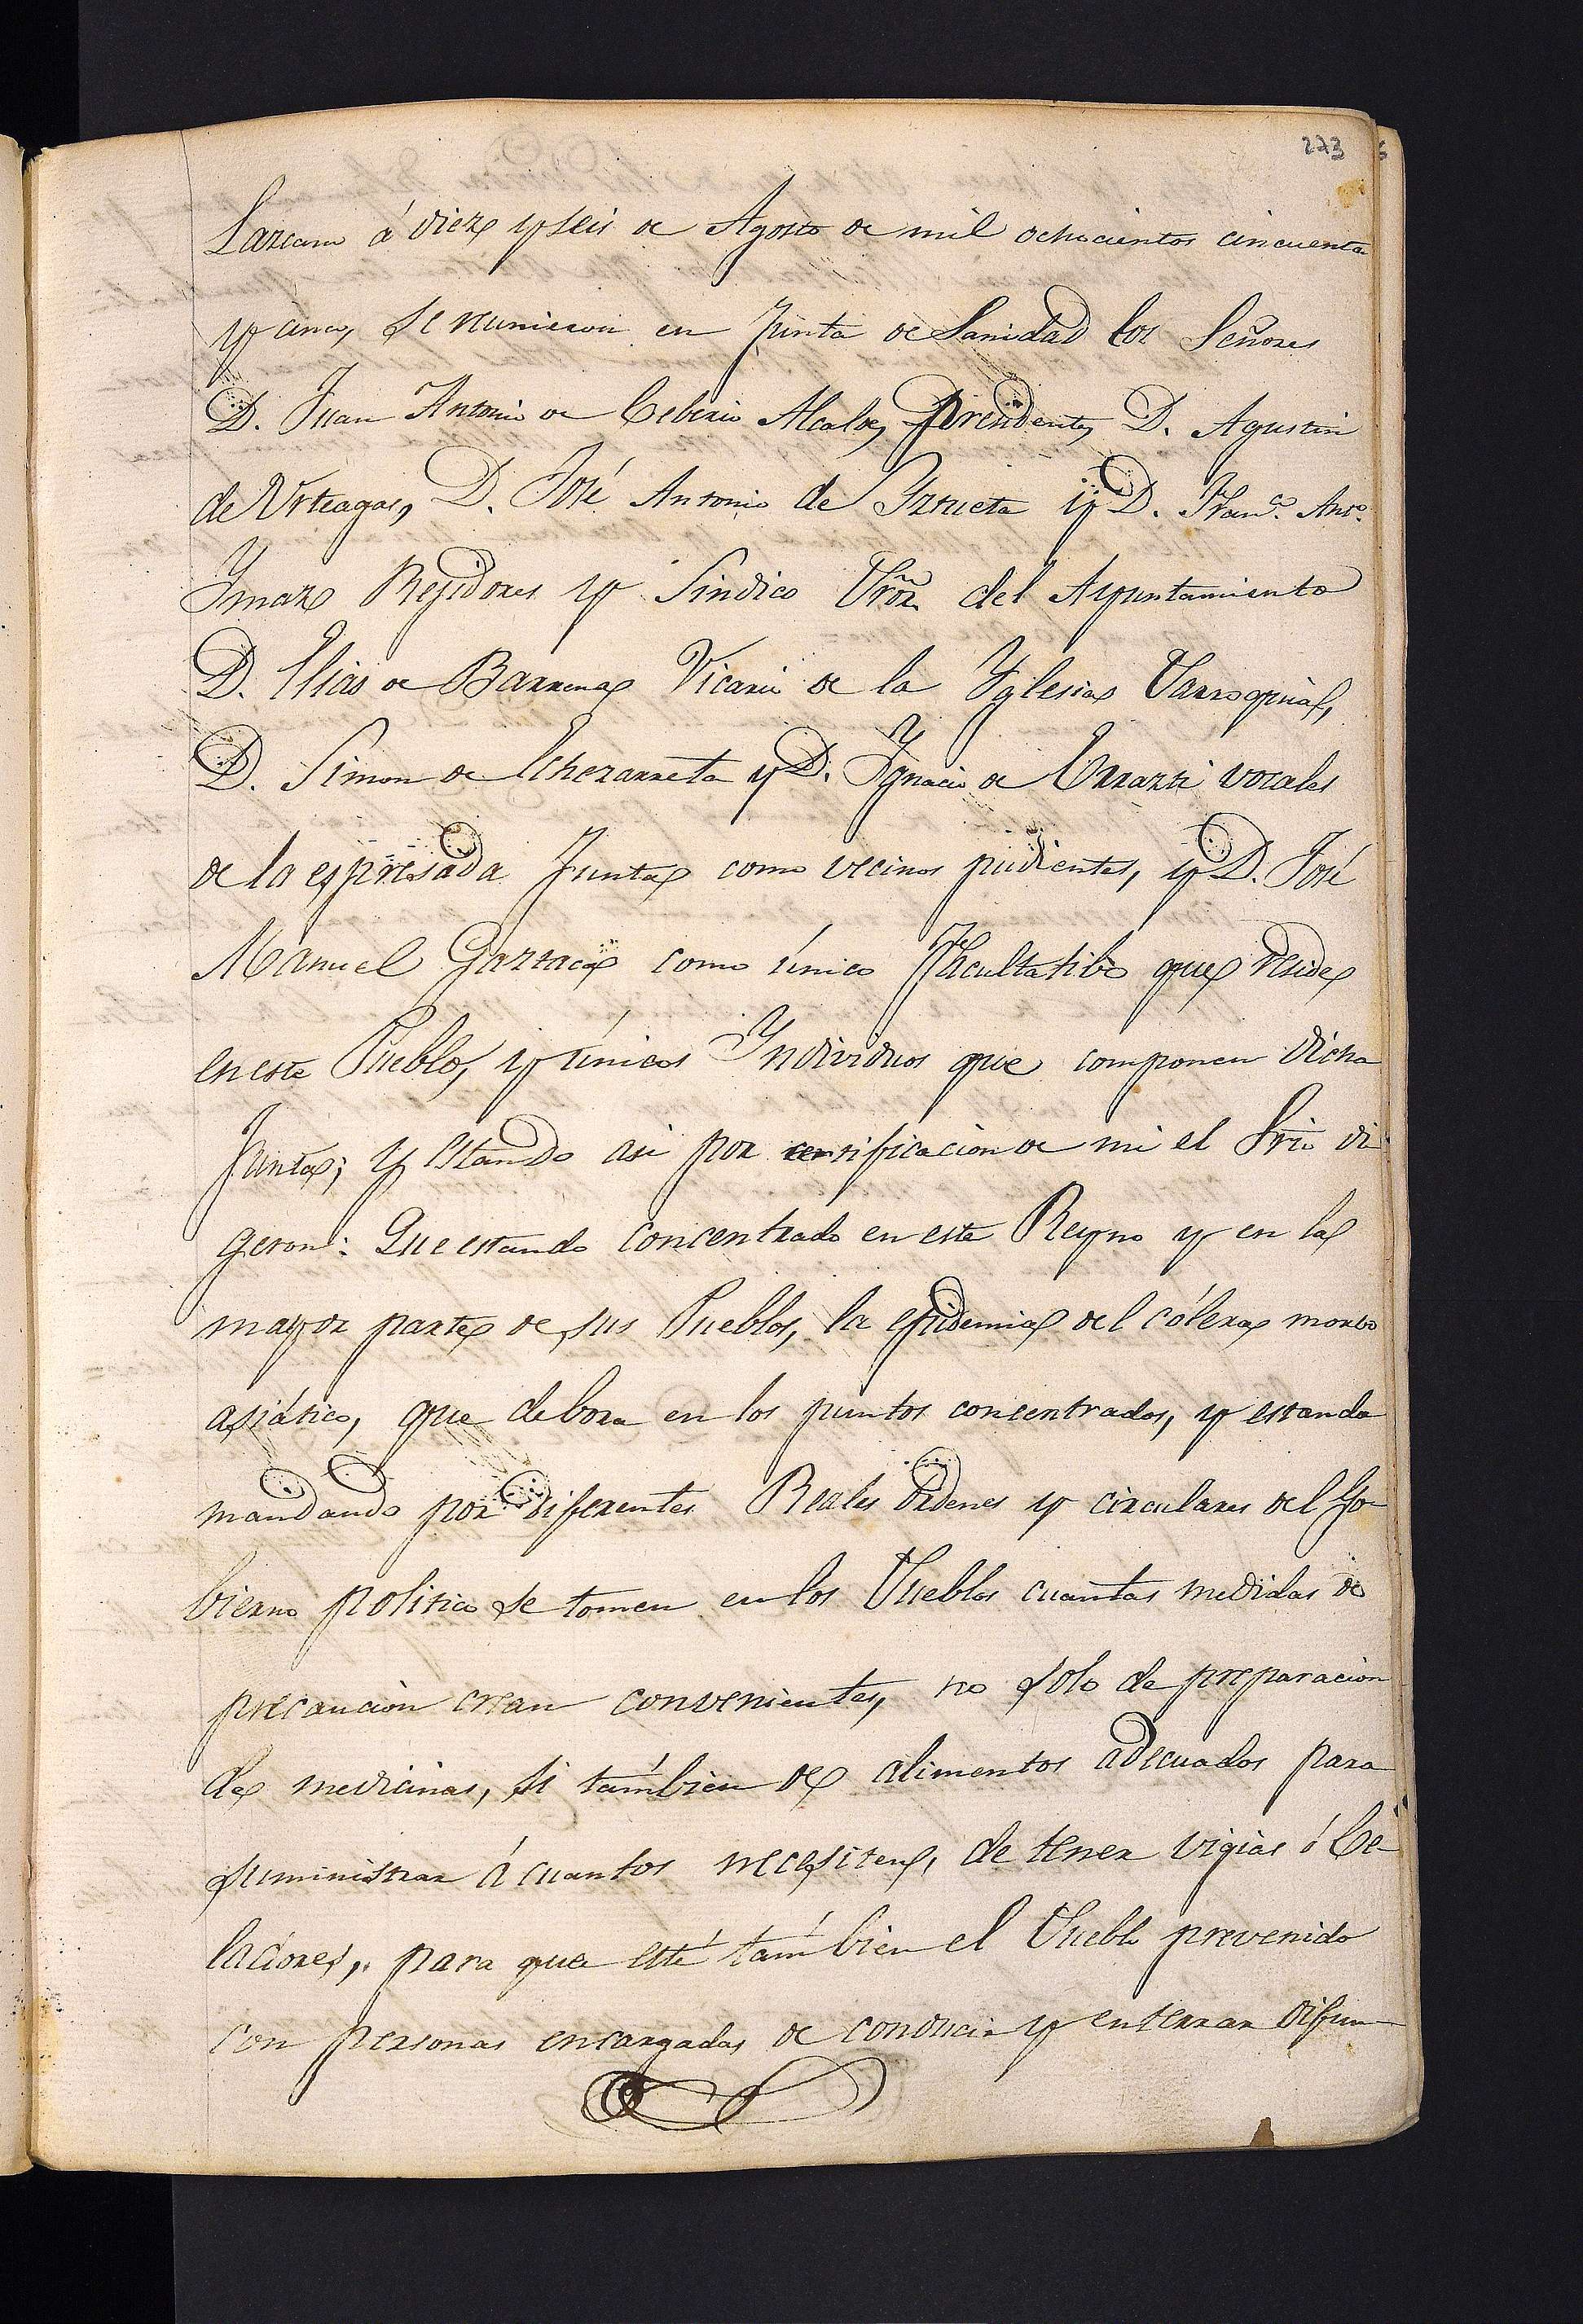 273
Lazcano á diez y seis de Agosto de mil ochocientos cincuenta
y cinco, se reunieron en Junta de Sanidad los Señores
D. Juan Antonio de Ceberio Alcalde, Presidente, D. Agustin
de Urteaga, D. José Antonio de Yrueta y D. Franco. Anto.
Ymaz Regidores y Sindico Pror. del Ayuntamiento
D. Elias de Barrena Vicario de la Yglesia Parroquial,
D. Simon de Echezarreta y D. Ygnacio de Errazti vocales
de la espresada Junta como vecinos pudientes, y D. José
Manuel Goztaca como único Facultatibo que reside
en este Pueblo, y únicos Yndividuos que componen dicha
Junta; y estando asi por certificacion de mi el Srio di-
geron: Que estando concentrado en este Reyno y en la
mayor parte de sus Pueblos, la epidemia del cólera morbo
asiático, que debora en los puntos concentrados, y estando
mandando por diferentes Reales Ordenes y circulares del Go-
bierno politico se tomen en los Pueblos cuantas medidas de
precaucion crean convenientes, no solo de preparacion
de medicinas, si también de alimentos adecuados para
suministrar á cuantos necesiten, de tener vigias ó Ce-
ladores, para que esté también el Pueblo prevenido
con personas encargadas de conducir y enterrar difun-